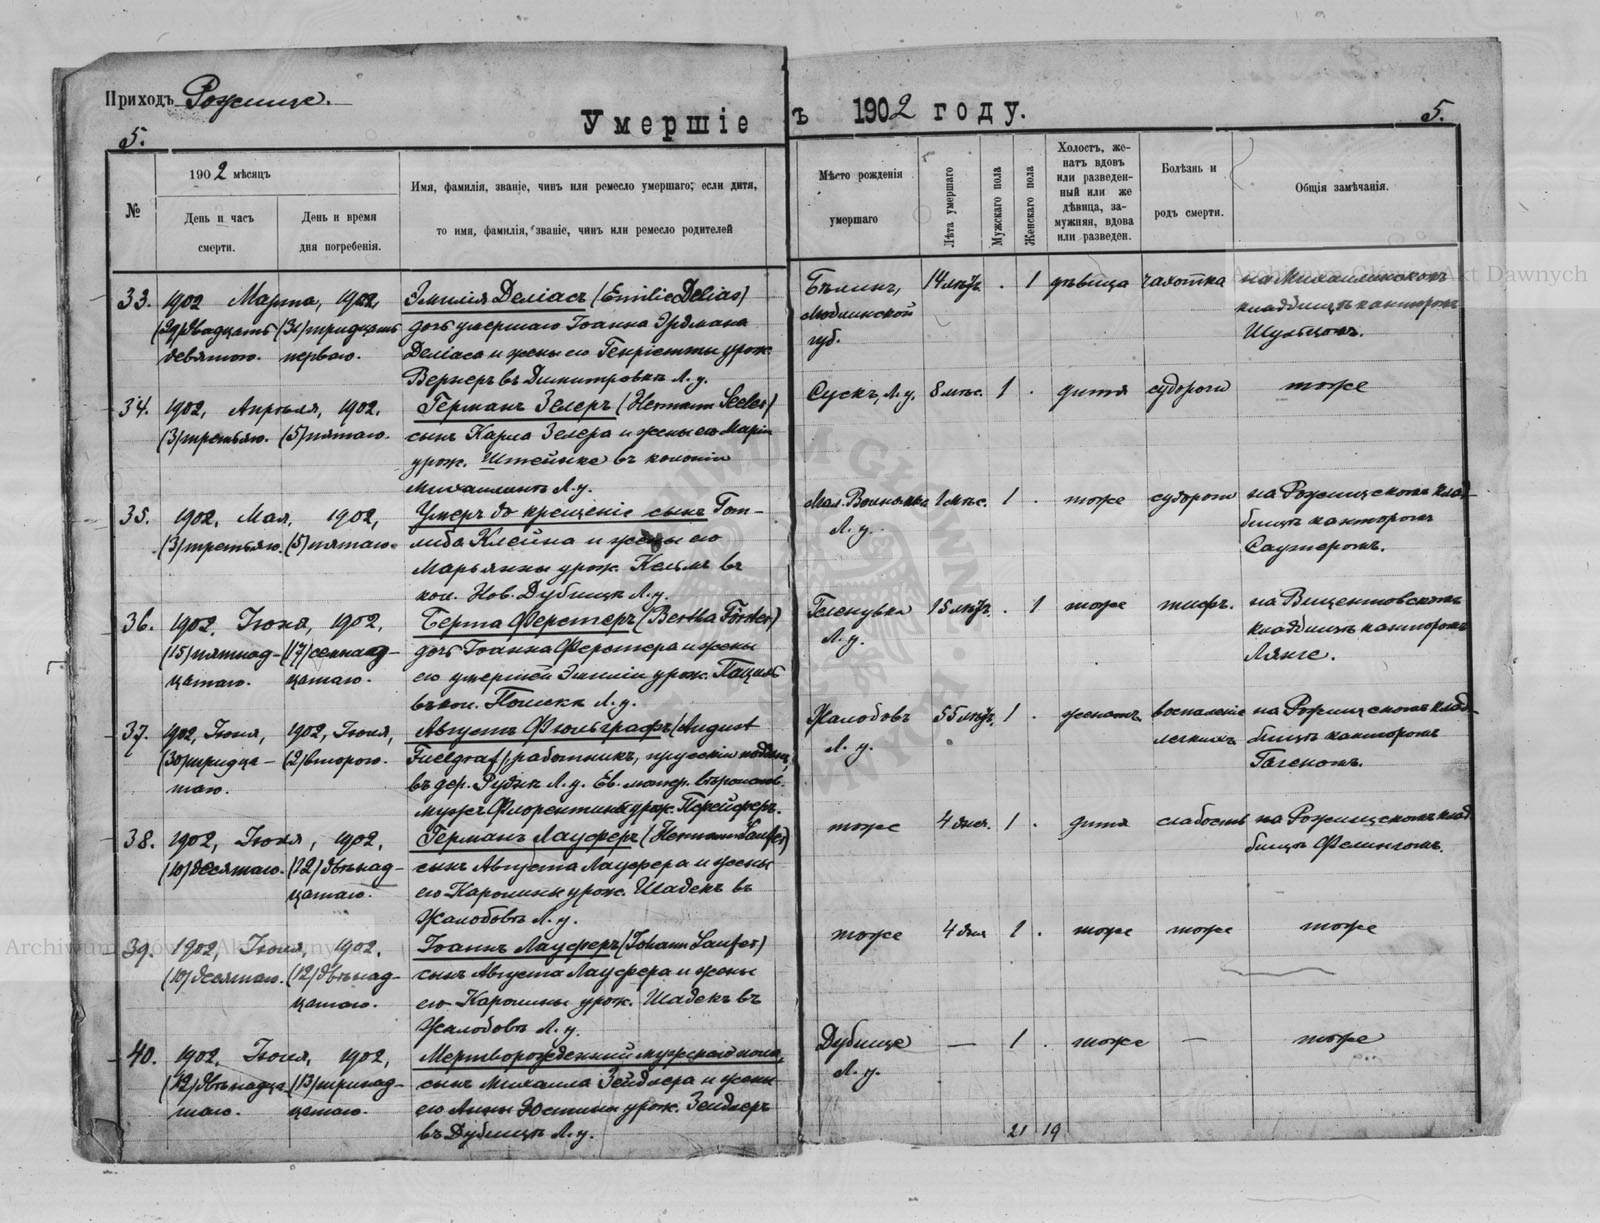 Приходъ Рожище.
Умершіе въ 1902 году.
5. 5.
№
1902 мѣсяцъ
День и часъ смерти.
День и время дня погребенія.
Имя, фамилія, званіе, чинъ или ремесло умершаго; если дитя,
то имя, фамилія, званіе, чинъ или ремесло родителей
Мѣсто рожденія умершаго
Лѣта умершаго
Мужскаго пола
Женскаго пола
Холостъ, же-
натъ вдовъ
или разведен-
ный или же
дѣвица, за-
мужняя, вдова
или разведен.
Болѣзнь и родъ смерти.
Общія замѣчанія.
33. 1902 Марта, 1902, Эмилія Деліасъ (Emilie Delias) Бѣлинъ, 14 лѣтъ. . 1 дѣвица чахотка на Михаилинскомъ
(29) двадцать (31) тридцать дочь умершаго Іоанна Эрдмана Люблинской кладбищѣ канторомъ
девятого. первого. Деліаса и жены его Генріетты урож. губ. Шульцомъ.
Вернеръ въ Димитровкѣ Л. у.
34. 1902, Апрѣля, 1902. Германъ Зелеръ (Hermann Seeler) Сускъ, Л. у. 8 мѣс. 1 . дитя судороги тоже
(3) третьяго. (5) пятаго. сынъ Карла Зелера и жены его Маріи
урож. Штейнке въ колоніи
Михаилинѣ Л. у.
35. 1902, Мая, 1902, Умеръ до крещенія сынъ Гот- 1 мѣс. 1 . тоже судороги на Рожищскомъ клад-
(3) третьяго. (5) пятаго. либа Клейна и жены его Л. у. бищѣ канторомъ
Марьянны урож. въ Саутеромъ.
кол. Нов. Дубищѣ Л. у.
36. 1902, Іюня, 1902, Берта Ферстеръ (Bertha Förster) Геленувка 15 лѣтъ. . 1 тоже тифъ. на Вицентовскомъ
(15) пятнад- (17) семнад- дочь Іоанна Ферстера и жены Л. у. кладбищѣ канторомъ
цатаго. цатаго. его умершей Эмиліи урож. Лянге.
въ кол. Л. у.
37. 1902, Іюня, 1902, Іюля, Августъ Фюльграфъ (August Жалобовъ 55 лѣтъ. 1 . женатъ. воспаленіе на Рожищскомъ клад-
(30) тридца- (2) второго. Fuelgraf), работникъ, прусскій Л. у. легкихъ бищѣ канторомъ
таго. въ дер. Л. у. Ев. лютер.
мужъ Флорентины урож.
38. 1902, Іюля, 1902, Германъ Лауферъ (Hermann Laufer) тоже 4 дня. 1 . дитя слабость на Рожищскомъ клад-
(10) десятаго. (12) двѣнад- сынъ Августа Лауфера и жены бищѣ
цатаго. его Каролины урож. Шадекъ въ
Жалобовѣ Л. у.
39. 1902, Іюля, 1902. Іоаннъ Лауферъ (Johann Laufer) тоже 4 дня 1 . тоже тоже тоже
(10) десятаго. (12) двѣнад- сынъ Августа Лауфера и жены
цатаго. его Каролины урож. Шадекъ въ
Жалобовѣ Л. у.
40. 1902, Іюля, 1902, Мертворожденный мужскаго пола, Дубище — 1 . тоже — тоже
(12) двѣнадца- (13) тринад- сынъ Михаила Зейдлера и жены Л. у.
таго. цатаго. его Анны Юстины урож. Зейдлеръ
въ Дубищѣ Л. у.
21 19
Archiwum Główne Akt Dawnych
Archiwum Główne Akt Dawnych